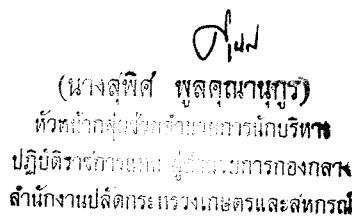 (นางสุพิศ พูลคุณานุกูร)
หัวหน้ากลุ่มช่วยอำนวยการนักบริหาร
ปฏิบัติราชการแทน ผู้อำนวยการกองกลาง
สำนักงานปลัดกระทรวงเกษตรและสหกรณ์